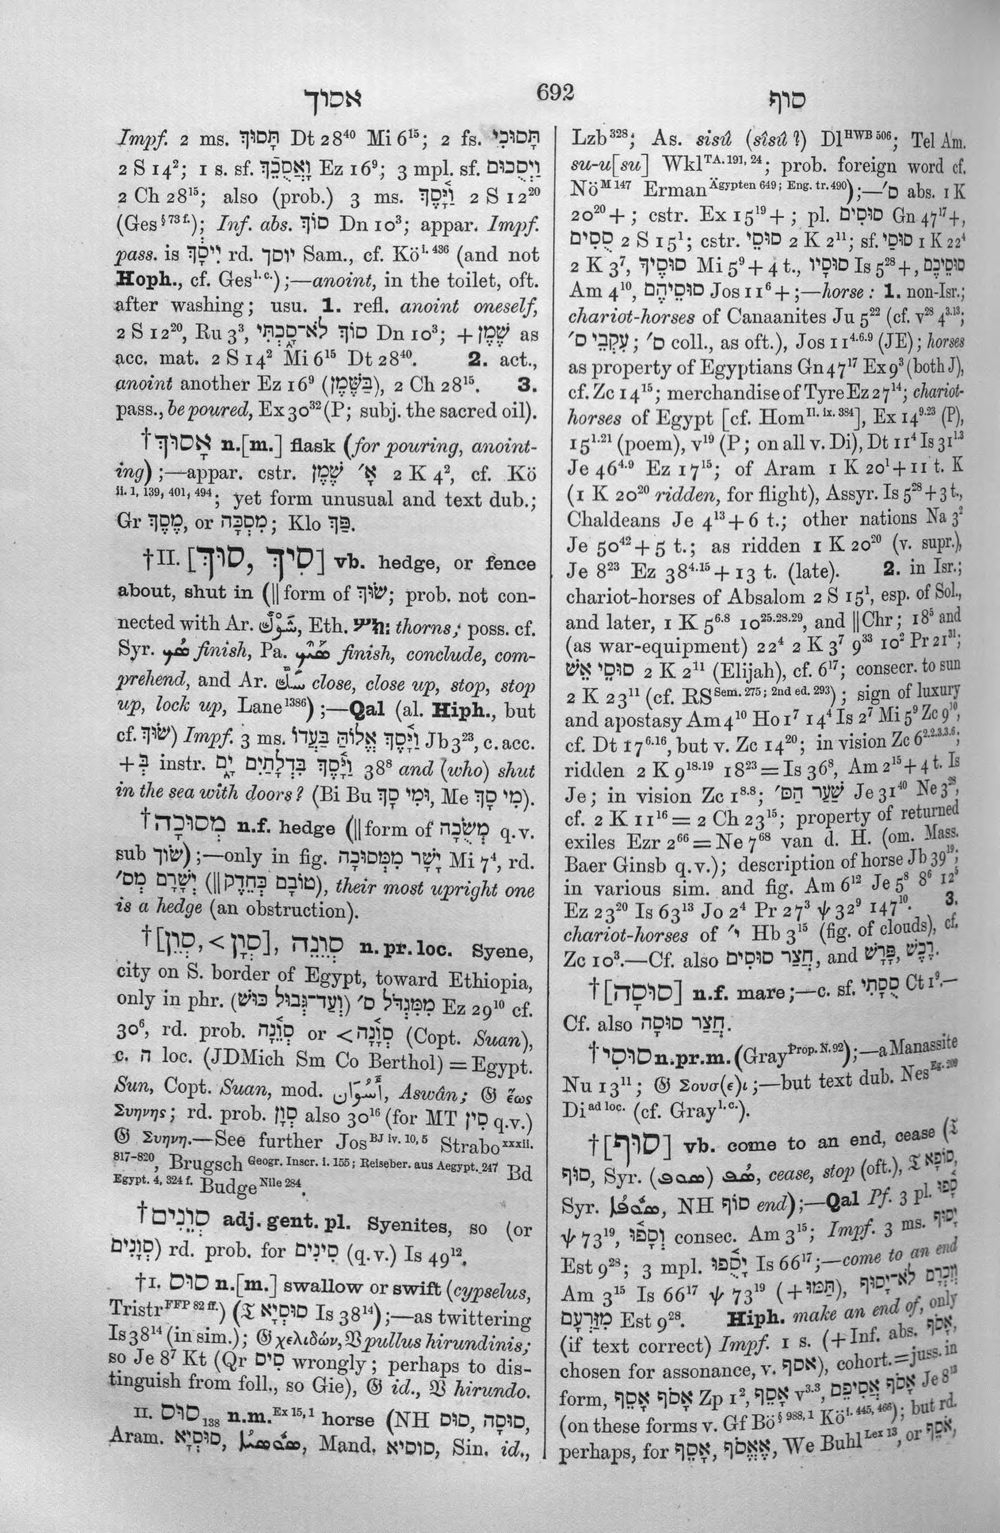 אסוך
692
סוף
Impf. 2 ms. תָּסוּךְ Dt 28⁴⁰ Mi 6¹⁵; 2 fs. תָּסוּכִי
2 S 14²; 1 s. sf. וָאֲסֻכֵךְ Ez 16⁹; 3 mpl. sf. וַיְסֻכוּם
2 Ch 28¹⁵; also (prob.) 3 ms. וַיָּסֶךְ 2 S 12²⁰
(Ges§73f.); Inf. abs. סוֹךְ Dn 10³; appar. Impf.
pass. is יִיסָךְ; rd. יוסך Sam., cf. Köi. 436 (and not
Hoph., cf. Gesl.c.);—anoint, in the toilet, oft.
after washing; usu. 1. refl. anoint oneself,
2 S 12²⁰, Ru 3³, סוֹךְ לֹא־סָכְתִּי Dn 10³; + שֶׁמֶן as
acc. mat. 2 S 14² Mi 6¹⁵ Dt 28⁴⁰. 2. act.,
anoint another Ez 16⁹ (בַּשֶּׁמֶן), 2 Ch 28¹⁵. 3.
pass., be poured, Ex 30³² (P; subj. the sacred oil).
†אָסוּךְ n.[m.] flask (for pouring, anoint-
ing);—appar. cstr. אָ׳ שֶׁמֶן 2 K 4², cf. Kö
ii. 1, 139, 401, 494; yet form unusual and text dub.;
Gr מֶסֶךְ, or מִסְכָּה; Klo פַּךְ.
†II. [סוּךְ, סִיךְ] vb. hedge, or fence
about, shut in (‖form of שׂוּךְ; prob. not con-
nected with Ar. شَوْكٌ, Eth. ሦክ: thorns; poss. cf.
Syr. finish, Pa. finish, conclude, com-
prehend, and Ar. سَكَّ close, close up, stop, stop
up, lock up, Lane1386);—Qal (al. Hiph., but
cf. שׂוּךְ) Impf. 3 ms. וַיָּסֶךְ אֱלוֹהַּ בַּעֲדוֹ Jb 3²³, c. acc.
+ בְּ instr. וַיָּסֶךְ בִּדְלָתַיִם יָם 38⁸ and (who) shut
in the sea with doors? (Bi Bu וּמִי סָךְ, Me מִי סָךְ).
†מְסוּכָה n.f. hedge (‖form of מְשֻׂכָה q.v.
sub שׂוּךְ);—only in fig. יָשָׁר מִמְּסוּכָה Mi 7⁴, rd.
יְשָׁרָם מְס׳ (‖טוֹבָם כְּחֵדֶק), their most upright one
is a hedge (an obstruction).
†[סְוֵן, < סְוָן], סְוֵנֵה n.pr.loc. Syene,
city on S. border of Egypt, toward Ethiopia,
only in phr. מִמִּגְדֹּל ס׳ (וְעַד־גְּבוּל כּוּשׁ) Ez 29¹⁰ cf.
30⁶, rd. prob. סְוֵנָה or < סְוָנָה (Copt. Suan),
c. ה loc. (JDMich Sm Co Berthol) = Egypt.
Sun, Copt. Suan, mod. أُسْوَان, Aswân; 𝔊 ἕως
Συηνης; rd. prob. סְוָן also 30¹⁶ (for MT סִין q.v.)
𝔊 Συηνη.—See further JosBJ iv. 10, 5 Straboxxxii.
817-820, BrugschGeogr. Inscr. i. 155; Reiseber. aus Aegypt. 247 Bd
Egypt. 4, 324 f. BudgeNile 284.
†סְוֵנִים adj. gent. pl. Syenites, so (or
סְוָנִים) rd. prob. for סִינִים (q.v.) Is 49¹².
†I. סוּס n.[m.] swallow or swift (cypselus,
TristrFFP 82 ff.) (𝔗 סוּסְיָא Is 38¹⁴);—as twittering
Is 38¹⁴ (in sim.); 𝔊 χελιδών, 𝔙 pullus hirundinis;
so Je 8⁷ Kt (Qr סִיס wrongly; perhaps to dis-
tinguish from foll., so Gie), 𝔊 id., 𝔙 hirundo.
II. סוּס₁₃₈ n.m.Ex 15, 1 horse (NH סוּס, סוּסָה,
Aram. סוּסְיָא, ܣܘܣܝܐ, Mand. סוסיא, Sin. id.,
Lzb328; As. sisû (sîsû?) DlHWB 506; Tel Am.
su-u[su] WklTA. 191, 24; prob. foreign word cf.
NöM 147 ErmanÄgypten 649; Eng. tr. 490);—ס׳ abs. 1 K
20²⁰ +; cstr. Ex 15¹⁹ +; pl. סוּסִים Gn 47¹⁷ +,
סֻסִים 2 S 15¹; cstr. סוּסֵי 2 K 2¹¹; sf. סוּסַי 1 K 22⁴
2 K 3⁷, סוּסֶיךָ Mi 5⁹ + 4 t., סוּסָיו Is 5²⁸ +, סוּסֵיכֶם
Am 4¹⁰, סוּסֵיהֶם Jos 11⁶ +;—horse: 1. non-Isr.;
chariot-horses of Canaanites Ju 5²² (cf. v²⁸ 4³·¹³;
עִקְּבֵי ס׳; ס׳ coll., as oft.), Jos 11⁴·⁶·⁹ (JE); horses
as property of Egyptians Gn 47¹⁷ Ex 9³ (both J),
cf. Zc 14¹⁵; merchandise of Tyre Ez 27¹⁴; chariot-
horses of Egypt [cf. HomIl. ix. 384], Ex 14⁹·²³ (P),
15¹·²¹ (poem), v¹⁹ (P; on all v. Di), Dt 11⁴ Is 31¹·³
Je 46⁴·⁹ Ez 17¹⁵; of Aram 1 K 20¹ + 11 t. K
(1 K 20²⁰ ridden, for flight), Assyr. Is 5²⁸ + 3 t.,
Chaldeans Je 4¹³ + 6 t.; other nations Na 3²
Je 50⁴² + 5 t.; as ridden 1 K 20²⁰ (v. supr.),
Je 8²³ Ez 38⁴·¹⁵ + 13 t. (late). 2. in Isr.;
chariot-horses of Absalom 2 S 15¹, esp. of Sol.,
and later, 1 K 5⁶·⁸ 10²⁵·²⁸·²⁹, and ‖Chr; 18⁵ and
(as war-equipment) 22⁴ 2 K 3⁷ 9³³ 10² Pr 21³¹;
סוּסֵי אֵשׁ 2 K 2¹¹ (Elijah), cf. 6¹⁷; consecr. to sun
2 K 23¹¹ (cf. RSSem. 275; 2nd ed. 293); sign of luxury
and apostasy Am 4¹⁰ Ho 1⁷ 14⁴ Is 2⁷ Mi 5⁹ Zc 9¹⁰,
cf. Dt 17⁶·¹⁶, but v. Zc 14²⁰; in vision Zc 6²·²·³·³·⁶;
ridden 2 K 9¹⁸·¹⁹ 18²³ = Is 36⁸, Am 2¹⁵ + 4 t. Is
Je; in vision Zc 1⁸·⁸; שַׁעַר הַסּ׳ Je 31⁴⁰ Ne 3²⁸,
cf. 2 K 11¹⁶ = 2 Ch 23¹⁵; property of returned
exiles Ezr 2⁶⁶ = Ne 7⁶⁸ van d. H. (om. Mass.
Baer Ginsb q.v.); description of horse Jb 39¹⁹;
in various sim. and fig. Am 6¹² Je 5⁸ 8⁶ 12⁵
Ez 23²⁰ Is 63¹³ Jo 2⁴ Pr 27³ ψ 32⁹ 147¹⁰. 3.
chariot-horses of י׳ Hb 3¹⁵ (fig. of clouds), cf.
Zc 10³.—Cf. also חֲצַר סוּסִים, and רֶכֶשׁ, פָּרָשׁ.
†[סוּסָה] n.f. mare;—c. sf. סֻסָתִי Ct 1⁹.—
Cf. also חֲצַר סוּסָה.
†סוּסִי n.pr.m. (GrayProp. N. 92);—a Manassite
Nu 13¹¹; 𝔊 Σουσ(ε)ι;—but text dub. NesEg. 209
Diad loc. (cf. Grayl.c.).
†[סוּף] vb. come to an end, cease (𝔗
סוּף, Syr. cease, stop (oft.), 𝔗 סוֹפָא,
Syr. NH סוֹף end);—Qal Pf. 3 pl. סָפוּ
ψ 73¹⁹, וְסָפוּ consec. Am 3¹⁵; Impf. 3 ms. יָסוּף
Est 9²⁸; 3 mpl. יָסֻפוּ Is 66¹⁷;—come to an end
Am 3¹⁵ Is 66¹⁷ ψ 73¹⁹ (+ תַּמּוּ), וְזִכְרָם לֹא־יָסוּף
מִזַּרְעָם Est 9²⁸. Hiph. make an end of, only
(if text correct) Impf. 1 s. (+ Inf. abs. אָסֹף,
chosen for assonance, v. אסף), cohort. = juss. in
form, אָסֹף אָסֵף Zp 1², אָסֵף v³·³, אָסֹף אֲסִיפֵם Je 8¹³
(on these forms v. Gf Bö§ 988, 1 Köi. 445, 466); but rd.
perhaps, for אָסֵף, אֶאֱסֹף, We BuhlLex 13, or אֹסֵף,